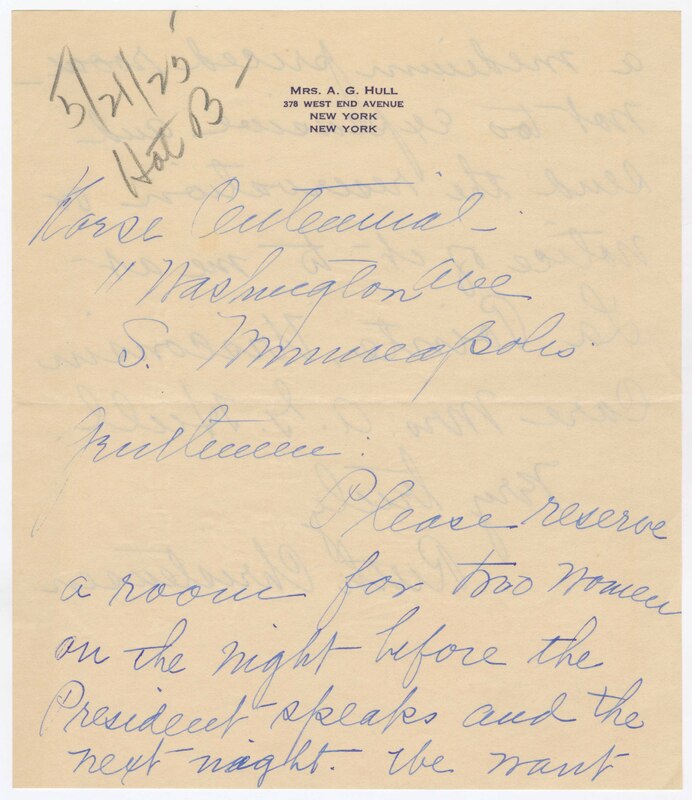 5/21/25
Hot B
MRS. A. G. HULL
378 WEST END AVENUE
NEW YORK
NEW YORK
Norse Centennial -
11 Washington Ave
S. Minneapolis.
Gentlemen:
Please reserve
a room for two women
on the night before the
President speaks and the
next night. We want